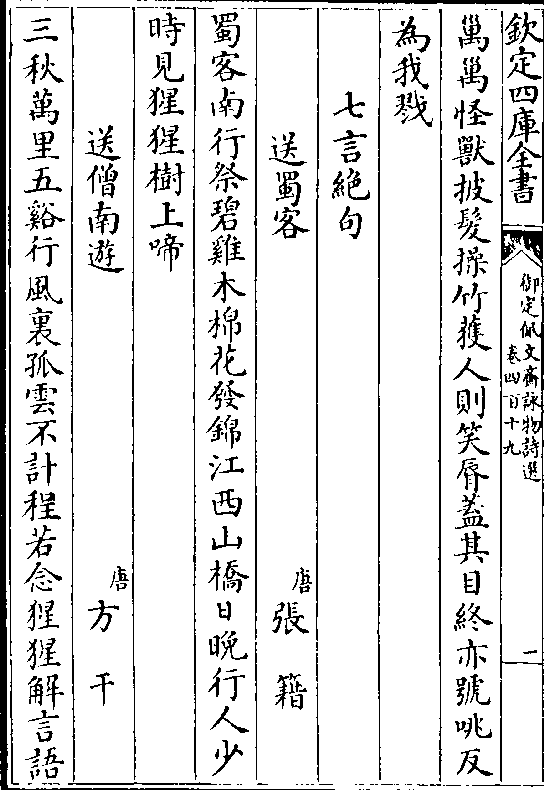 欽定四庫全書
御定佩文齋詠物詩選
卷四百十九
一
萬萬怪獸披髮操竹獲人則笑脣蓋其目終亦號咷反
為我戮
七言絕句
送蜀客
唐張籍
蜀客南行祭碧雞木棉花發錦江西山橋日晚行人少
時見猩猩樹上啼
送僧南遊
唐方干
三秋萬里五谿行風裏孤雲不計程若念猩猩解言語